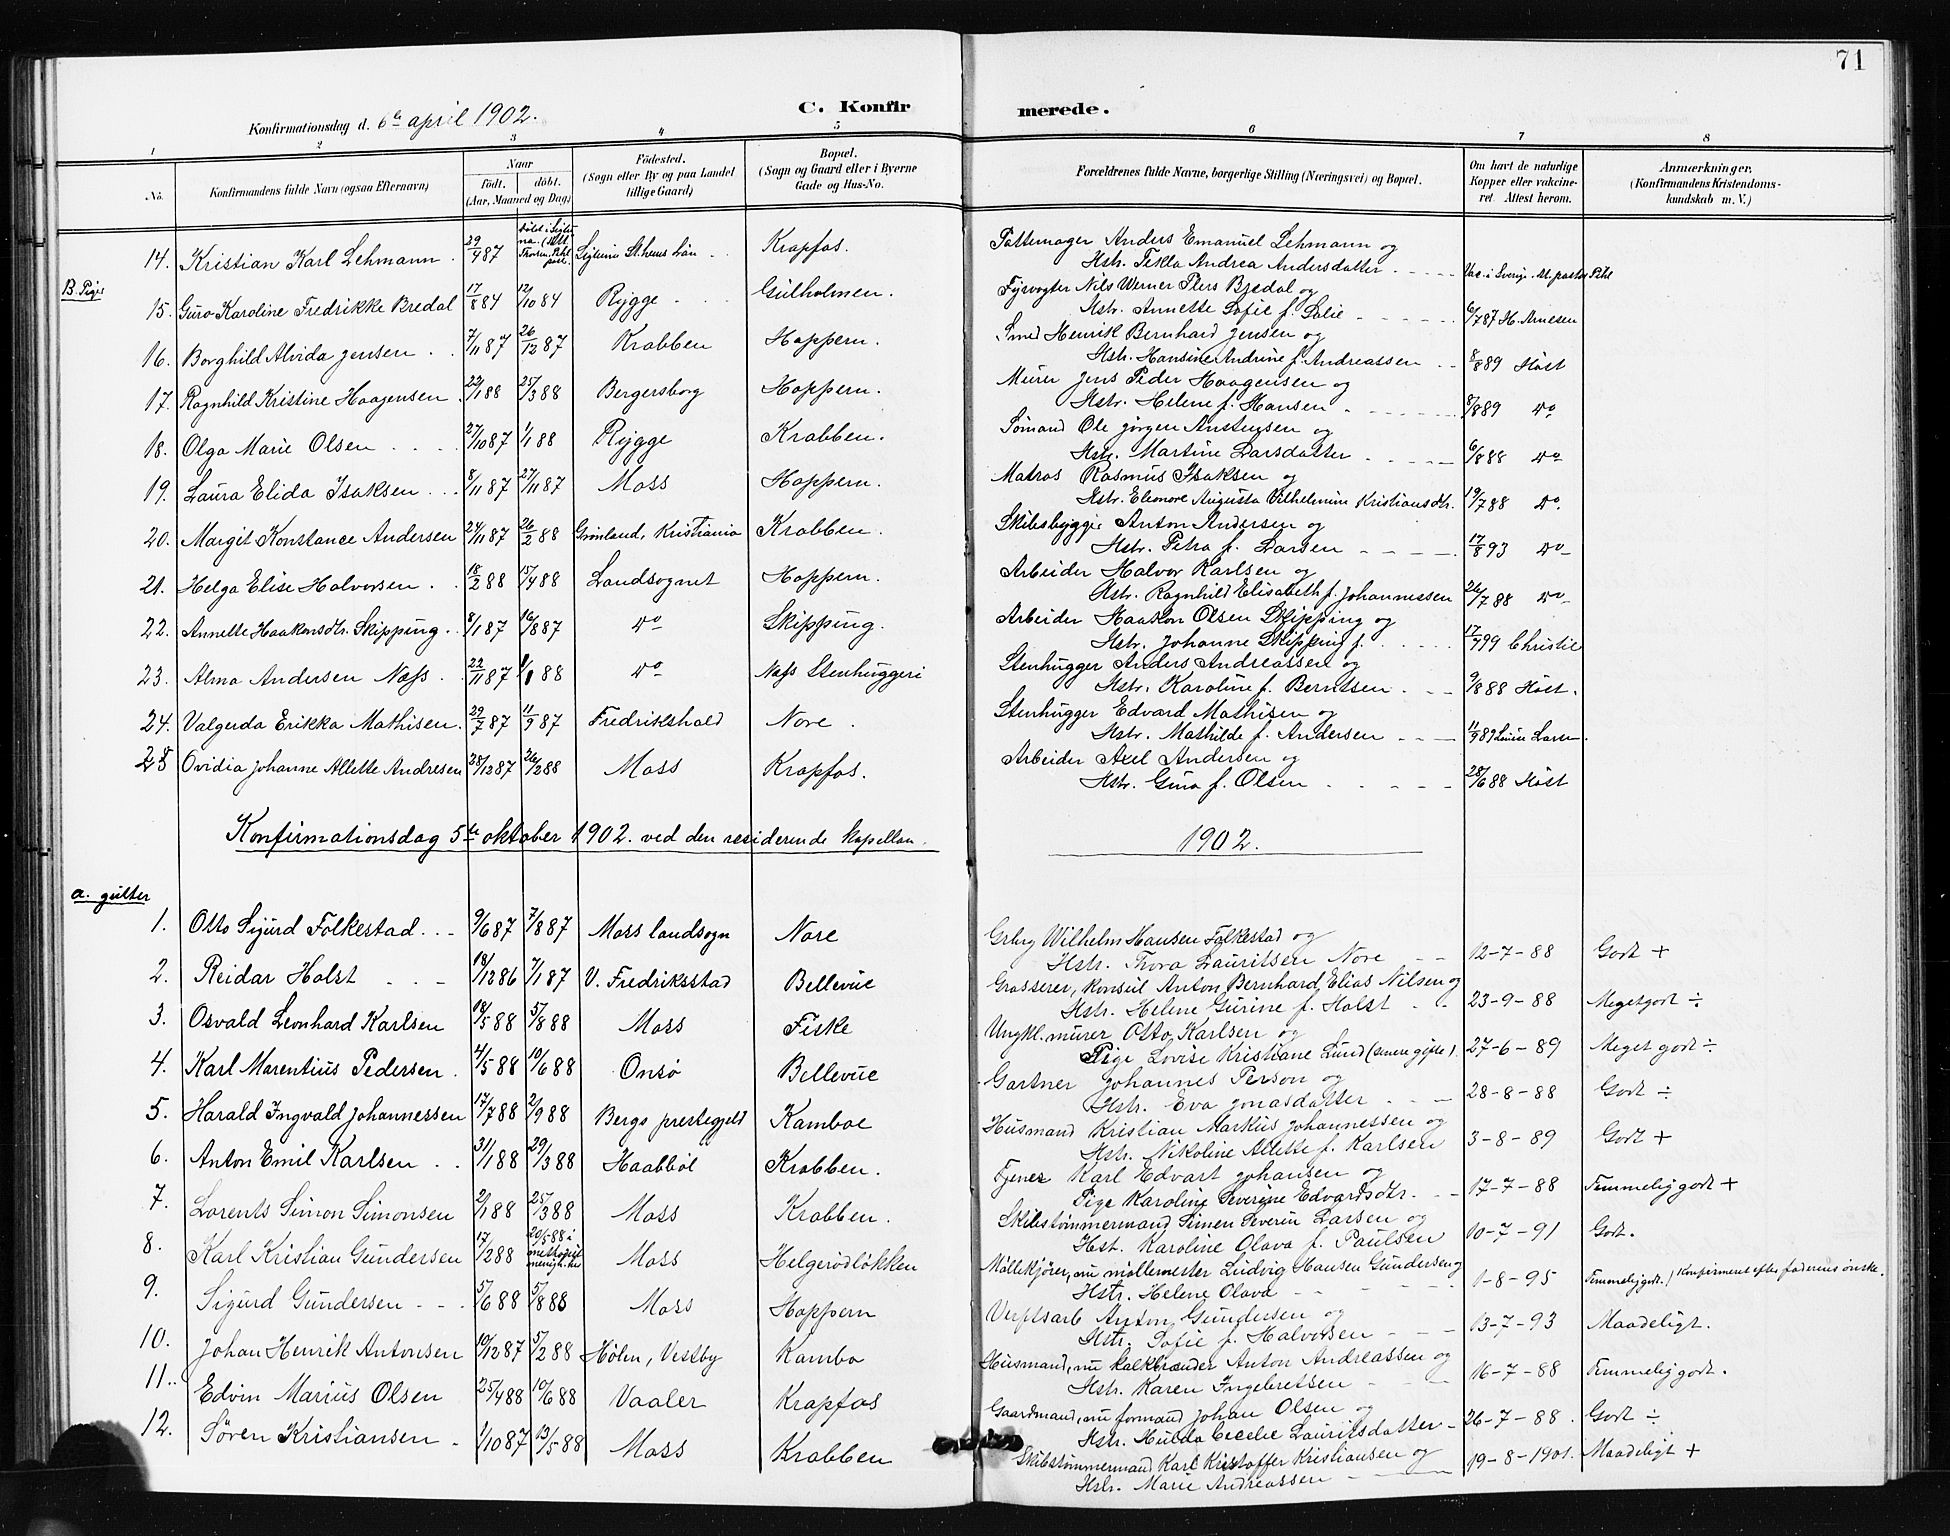 71
Konfirmationsdag d. 6te april 1902.
C. Konfirmerede.
1 2 3 4 5 6 7 8
No. Konfirmandens fulde Navn (ogsaa Efternavn) Naar födt. döbt. (Aar, Maaned og Dag) Födested. (Sogn eller By og paa Landet tillige Gaard) Bopæl. (Sogn og Gaard eller i Byerne Gade og Hus-No. Forældrenes fulde Navne, borgerlige Stilling (Næringsvei) og Bopæl. Om havt de naturlige Kopper eller vakcineret. Attest herom. Anmærkninger. (Konfirmandens Kristendomskundskab m. V.)
14. Kristian Karl Lehmann 29/4 87 Krapfos. Pottemager Anders Emanuel Lehmann og
Hstr. Tekla Andrea Andersdatter Vac. i Sverige
B. Piger
15. Guro Karoline Fredrikke Bredal 17/8 84 12/10 84 Rygge Gulholmen. Fyrvogter Nils Werner Plers Bjedal og
Hstr. Annette Sofie f. Solie 6/7 87 H. Arnesen
16. Borghild Alvida Jensen 7/11 87 26/12 87 Krabben Hoppern. Smed Henrik Bernhard Jensen og
Hstr. Hansine Andrine f. Andreassen 8/8 89 Höst
17. Ragnhild Kristine Haagensen 22/1 88 25/3 88 Bergersborg Hoppern. Murer Jens Peder Haagensen og
Hstr. Helene f. Hansen 8/8 89 do
18. Olga Marie Olsen 27/10 87 1/1 88 Rygge Krabben. Sømand Ole Jörgen Anstensen og
Hstr. Martine Larsdatter 6/8 88 do
19. Laura Elida Isaksen 8/11 87 27/11 87 Moss Hoppern. Matros Rasmus Isaksen og
Hstr. Eleonore Augusta Vilhelmine Kristiansdtr. 19/7 88 do.
20. Margit Konstance Andersen 24/11 87 26/2 88 Grönland, Kristiania Krabben. Skibsbygger Anton Andersen og
Hstr. Petra f. Larsen 17/8 93 do
21. Helga Elise Halvorsen 18/2 88 15/4 88 Landsognet Hoppern. Arbeider Halvor Karlsen og
Hstr. Ragnhild Elisabeth f. Johannessen 26/7 88 do
22. Annette Haakonsdtr. Skipping 8/1 87 16/8 87 do Skipping. Arbeider Haakon Olsen Skipping og
Hstr. Johanne Skipping f. 17/4 99 Christie
23. Alma Andersen Næss 22/11 87 1/1 88 do Næss Stenhuggeri Stenhugger Anders Andreassen og
Hstr. Karoline f. Berntsen 9/8 88 Höst.
24. Valgerda Erikka Mathisen 29/7 87 11/9 87 Fredrikshald Nore. Stenhugger Edvard Mathisen og
Hstr. Mathilde f. Andersen 11/9 89
25 Ovidia Johanne Allette Andresen 28/12 87 26/2 88 Moss Krapfos. Arbeider Axel Andersen og
Hstr. Gina f. Olsen 28/6 88 Höst
Konfirmationsdag 5te oktober 1902. ved den residerende kapellan. 1902.
a. gutter
1. Otto Sigurd Folkestad 9/6 87 7/8 87 Moss landsogn Nore Grbrg Wilhelm Hansen Folkestad og
Hstr. Thora Lauritsen Nore 12-7-88 Godt +
2. Reidar Holst 18/12 86 7/1 87 V. Fredriksstad Bellevue Grosserer, konsul Anton Bernhard Elias Nilsen og
Hstr. Helene Gurine f. Holst 23-9-88 Megetgodt ÷
3. Osvald Leonhard Karlsen 18/5 88 5/8 88 Moss Fiske Ungkl. murer Otto Karlsen og
Pige Lovise Kristiane Lund (senere gifte). 27-6-89 Meget godt ÷
4. Karl Marentius Pedersen 4/5 88 10/6 88 Onsö Bellevue Gartner Johannes Person og
Hstr. Eva Jonasdatter 28-8-88 Godt ÷
5. Harald Ingvald Johannessen 17/7 88 2/9 88 Bergs prestegjeld Kamboe Husmand Kristian Markus Johannessen og
Hstr. Nikoline Allette f. Karlsen 3-8-89 Godt +
6. Anton Emil Karlsen 31/1 88 29/3 88 Haabböl Krabben. Tjener Karl Edvart Johansen og
Pige Karoline Severine Edvardsdtr. 17-7-88 Temmelig godt +
7. Lorents Simon Simonsen 2/1 88 25/3 88 Moss Krabben. Skibstømmermand Simen Severin Larsen og
Hst. Karoline Olava f. Paulsen 10-7-91 Godt.
8. Karl Kristian Gundersen 17/2 88 20/5 88 i methodist menigh. her Moss Helgerødløkken Möllekjörer, nu möllemester Ludvig Hansen Gundersen og
Hstr. Helene Olava 1-8-95 Temmeliggodt. / Konfirmeret efter faderens önske.
9. Sigurd Gundersen 5/6 88 5/8 88 Moss Hoppern Verftsarb Anton Gundersen og
Hstr. Sofie f. Halvorsen 13-7-93 Maadeligt.
10. Johan Henrik Antonsen 10/12 87 5/2 88 Hölen, Vestby Kambo Husmand, nu kalkbrænder Anton Andreassen og
Hstr. Karen Ingebretsen 16-7-88 Temmelig godt.
11. Edvin Marius Olsen 25/4 88 10/6 88 Vaaler Krapfos Gaardmand, nu formand Johan Olsen og
Hstr. Hulda Cecelie Lauritsdatter 26-7-88. Godt ÷
12. Sören Kristiansen 1/10 87 13/5 88 Moss Krabben Skibstømmermand Karl Kristoffer Kristiansen og
Hstr. Marie Andreassen 19-8-1901. Maadeligt +